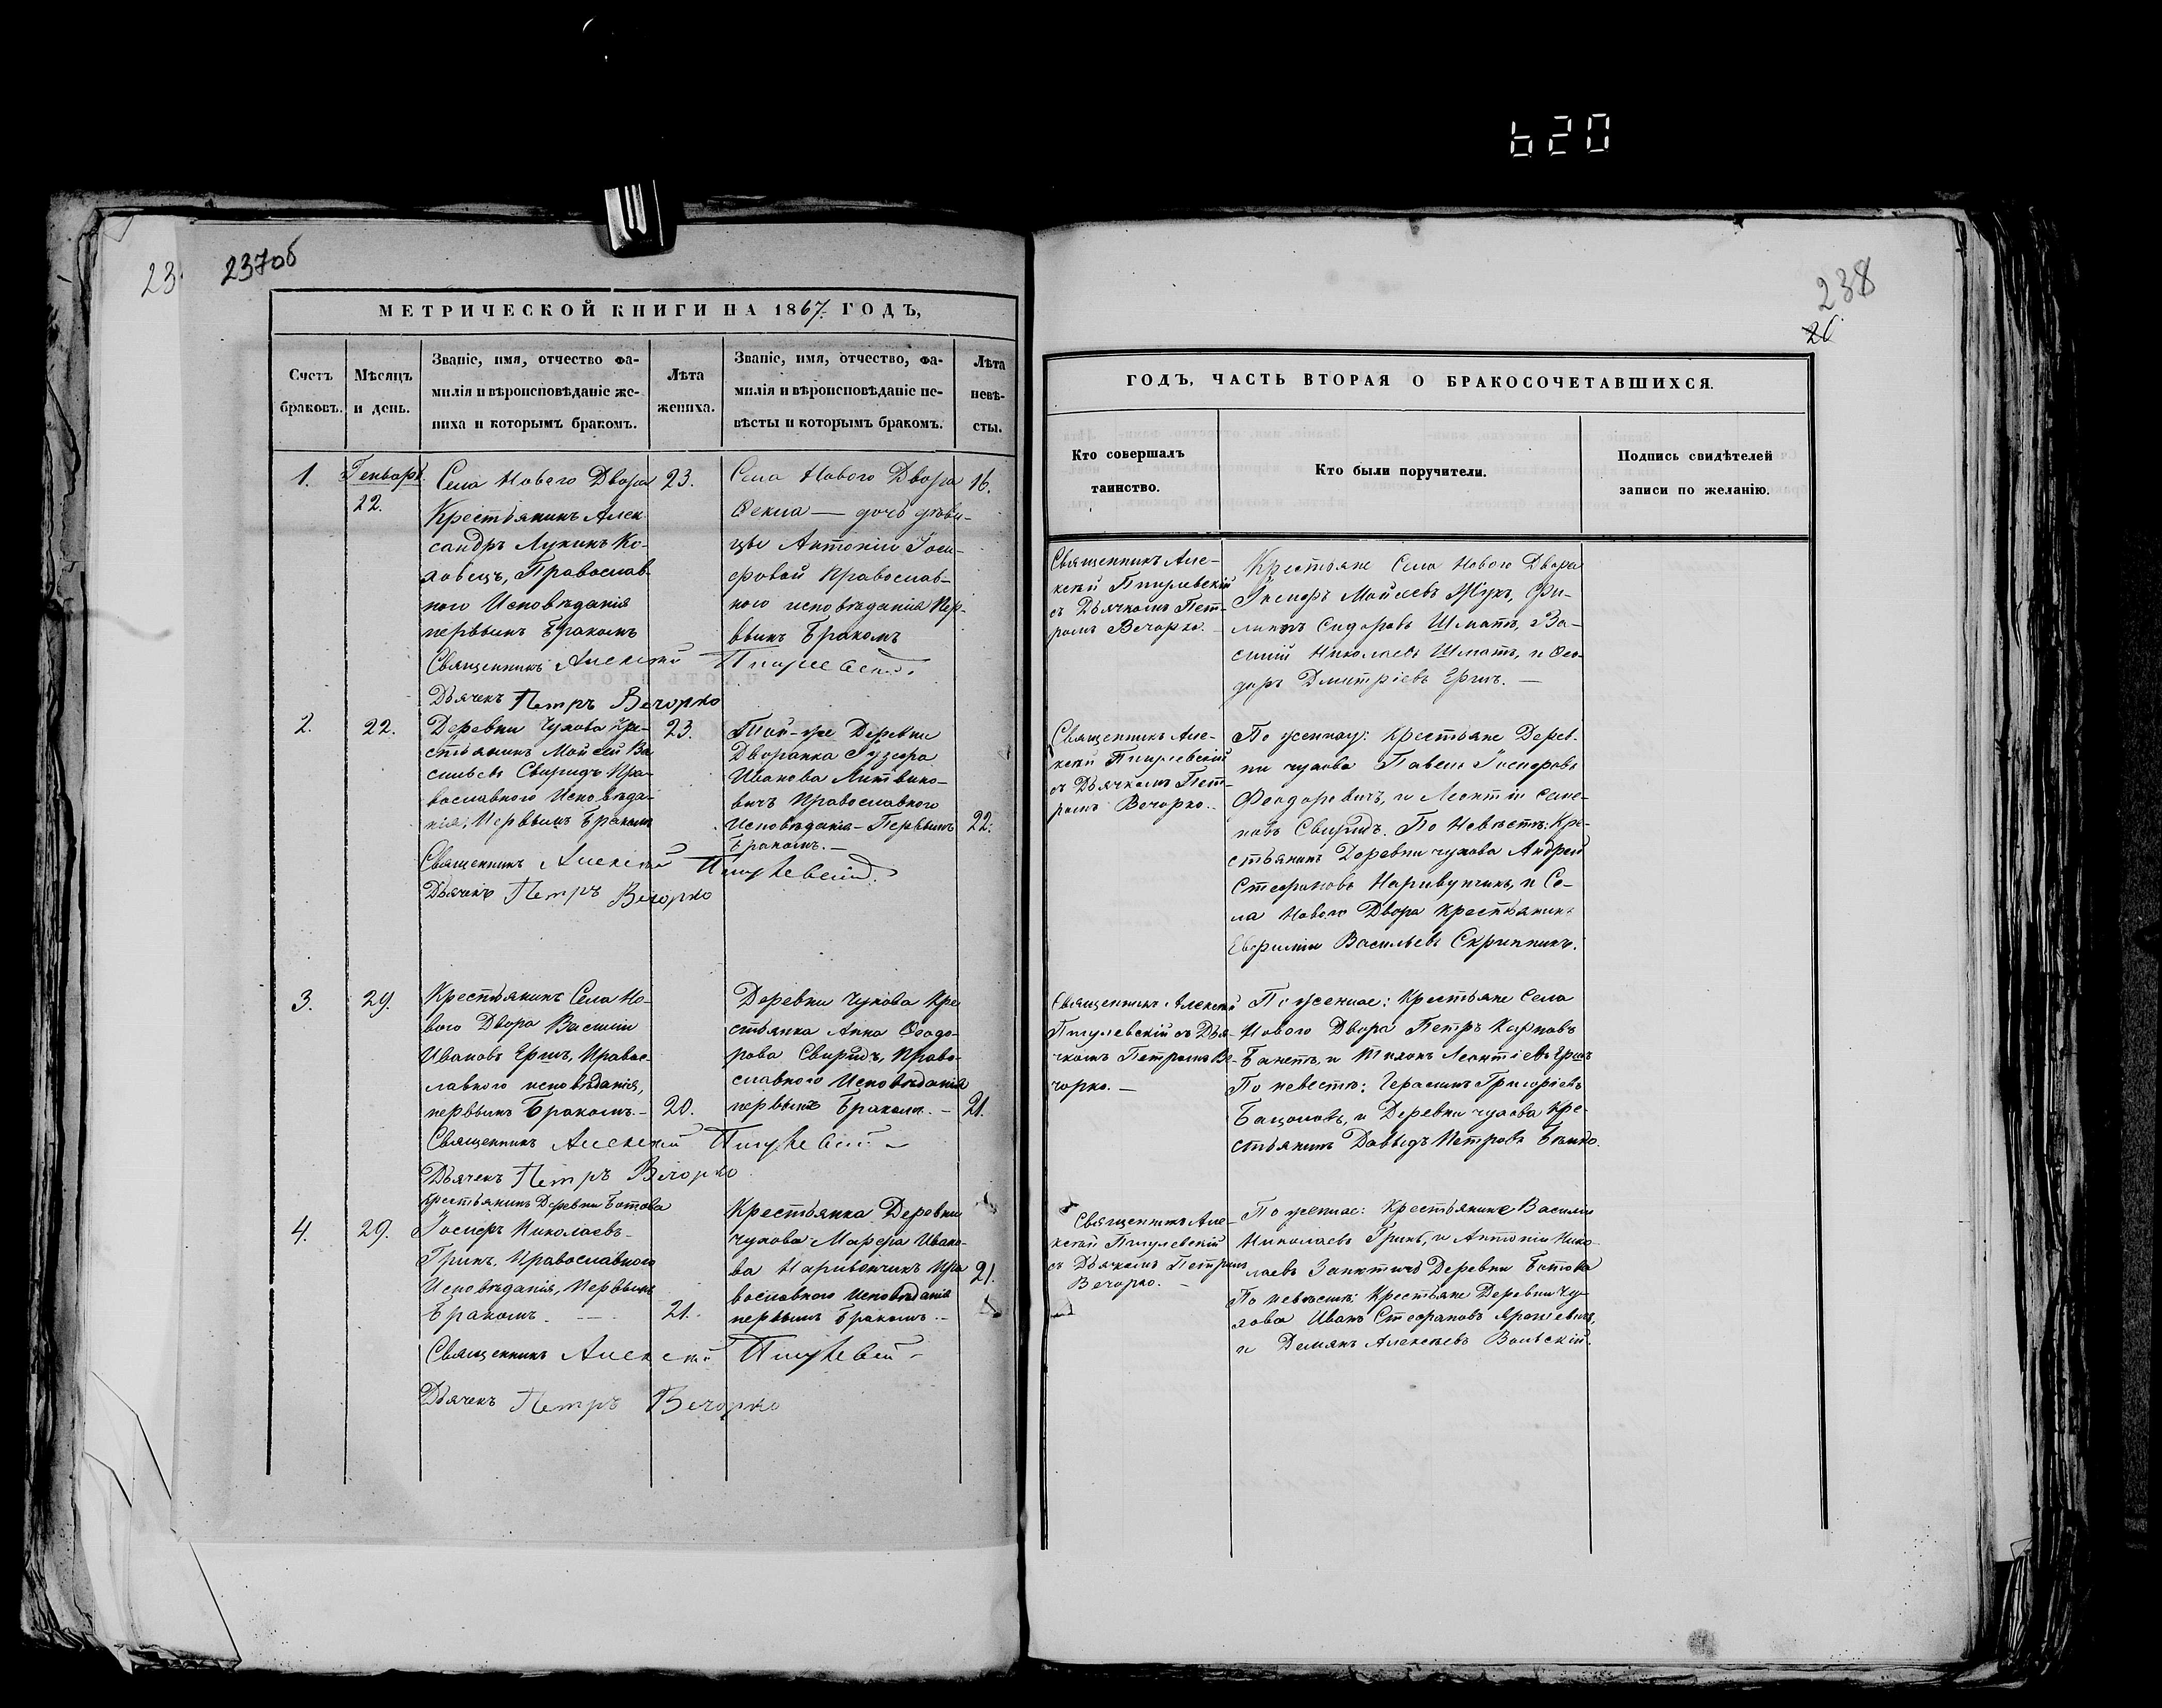 620
23
237об
МЕТРИЧЕСКОЙ КНИГИ НА 1867. ГОДЪ,
Счетъ браковъ.
Мѣсяцъ и день.
Званіе, имя, отчество фа-
милія и вѣроисповѣданіе же-
ниха и которымъ бракомъ.
Лѣта жениха.
Званіе, имя, отчество, фа-
милія и вѣроисповѣданіе не-
вѣсты и которымъ бракомъ.
Лѣта невѣ-
сты.
1.
Генварь
22.
Села Новаго Двора
Крестьянинъ Алек
сандръ Лукинъ Ко-
ховецъ, Православ-
ного Исповѣданія
первымъ Бракомъ
23.
Села Нового Двора
Фекла — дочь дѣви-
цы Антоніи Іоси-
фовой Православ-
ного исповѣданія Пер-
вымъ Бракомъ
16.
Священникъ Алексѣй
Дьячекъ Петръ Вечорко
2.
22.
Деревни Чухова Кре-
стьянинъ Мойсей Ва
сильевъ Свиридъ Пра-
вославного Исповѣда-
нія, Первымъ Бракомъ
23.
Той-же Деревни
Дворянка
Иванова Литвино-
вичъ Православного
Исповѣданія - Первымъ
Бракомъ. —
22.
Священникъ Алексѣй
Дьячекъ Петръ Вечорко
3.
29.
Крестьянинъ Села Но-
вого Двора Василій
Ивановъ Ершъ, Правос-
лавного исповѣданія,
первымъ Бракомъ. —
20.
Деревни Чухова Кре
стьянка Анна Феодо-
рова Свиридъ, Право-
славного Исповѣданія
первымъ Бракомъ. —
21.
Священникъ Алексѣй
Дьячекъ Петръ Вечорко
4.
29.
Крестьянинъ Деревни Ботова
Іосифъ Николаевъ
Гринь, Православного
Исповѣданія, Первымъ
Бракомъ.
21.
Крестьянка Деревни
Чухова Марфа Ивано-
ва Наривончикъ Пра
вославного Исповѣданія
первымъ Бракомъ. —
21.
Священникъ Алексѣй
Дьячекъ Петръ Вечорко
238
ГОДЪ, ЧАСТЬ ВТОРАЯ О БРАКОСОЧЕТАВШИХСЯ.
Кто совершалъ
таинство.
Кто были поручители.
Подпись свидѣтелей
записи по желанію.
Священникъ Але-
ксѣй Пигулевскій
съ Дьячкомъ Пет-
ромъ Вечорко.
Крестьяне Села Нового Двора
Іосифъ Мойсеевъ Жукъ, Фи-
липпъ Сидоровъ Шматъ, Ва-
силій Николаевъ Шматъ, и Фео-
доръ Дмитріевъ Ершъ. —
Священникъ Але-
ксѣй Пигулевскій
съ Дьячкомъ Пет-
ромъ Вечорко.
По жениху: Крестьяне Дерев-
ни Чухова Павелъ Іосифовъ
Феодоровичъ, и Леонтій Семе-
новъ Свиридъ. По Невѣстѣ: Кре-
стьянинъ Деревни Чухова Андрей
Стефановъ и Се-
ла Нового Двора Крестьянинъ
Васильевъ Скрипникъ.
Священникъ Алексѣй
Пигулевскій съ Дья-
чкомъ Петромъ Ве-
чорко. —
По женихе: Крестьяне Села
Нового Двора Петръ Карповъ
и Тихонъ Леонтіевъ Ершъ
По невестѣ: Герасимъ Григоріевъ
и Деревни Чухова Кре-
стьянинъ Давыдъ Петровъ
Священникъ Але-
ксѣй Пигулевскій
съ Дьячкомъ Петромъ
Вечорко. —
По женихе: Крестьянине Василій
Николаевъ Гринь, и Антоній Нико-
лаевъ Деревни Ботова
По невѣстѣ: Крестьяне Деревни Чу-
хова Иванъ Стефановъ
и Демянъ Алексѣевъ